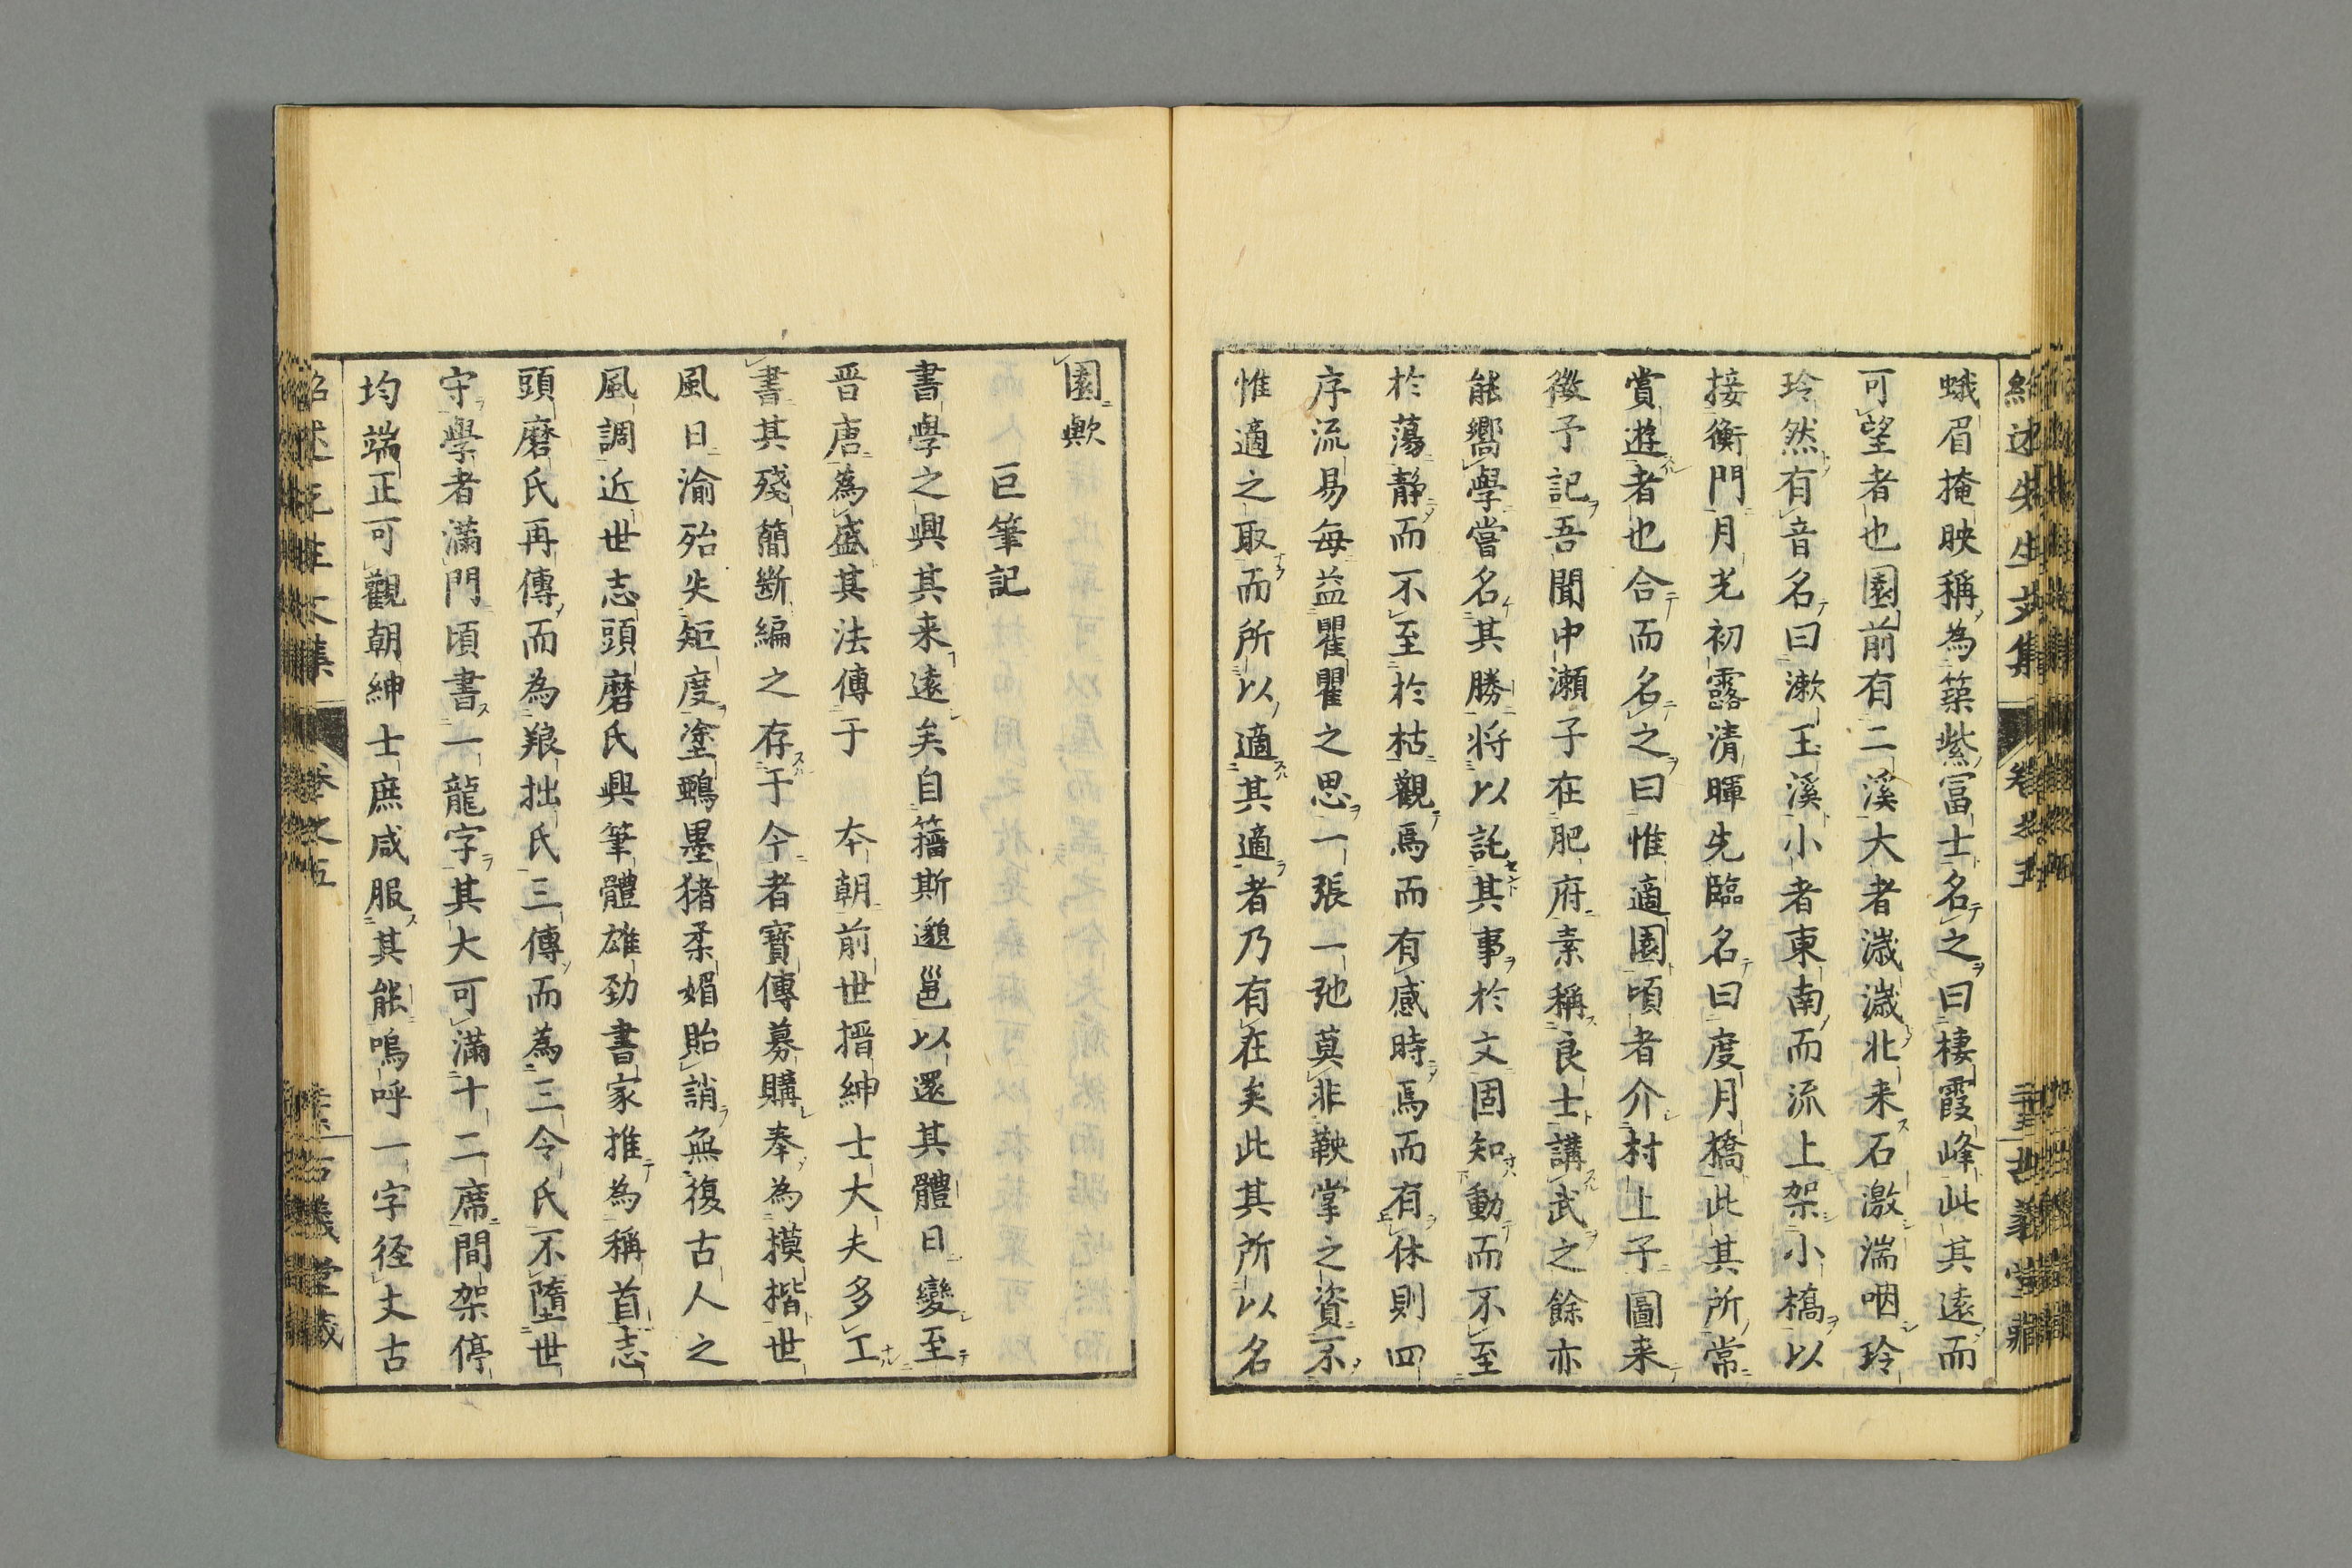 紹述先生文集 卷之五 古義堂藏
蛾眉掩映稱為築紫冨士名之曰棲霞峰此其遠而
可望者也園前有二溪大者濊濊北来石激湍咽玲
玲然有音名曰漱玉溪小者東南而流上架小橋以
接衡門月光初露清暉先臨名曰度月橋此其所常
賞遊者也合而名之曰惟適園頃者介村上子圖来
徴予記吾聞中瀬子在肥府素稱良士講武之餘亦
能嚮學當名其勝将以託其事於文固知動而不至
於蕩静而不至於枯觀焉而有感時焉而有休則四
序流易每益瞿瞿之思一張一弛莫非鞅掌之資不
惟適之取而所以適其適者乃有在矣此其所以名
園歟
巨筆記
書學之興其来遠矣自籒斯邈邕以還其體日變至
晋唐為盛其法傳于　本朝前世搢紳士大夫多工
書其殘簡断編之存于今者寶傳募購奉為摸楷世
風日渝殆失矩度塗鵶墨猪柔媚貽誚無復古人之
風調近世志頭磨氏興筆體雄勁書家推為稱首志
頭磨氏再傳而為羪拙氏三傳而為三令氏不墮世
守學者滿門頃書一龍字其大可滿十二席間架停
均端正可觀朝紳士庶咸服其能嗚呼一字径丈古
紹述先生文集 卷之五 古義堂藏